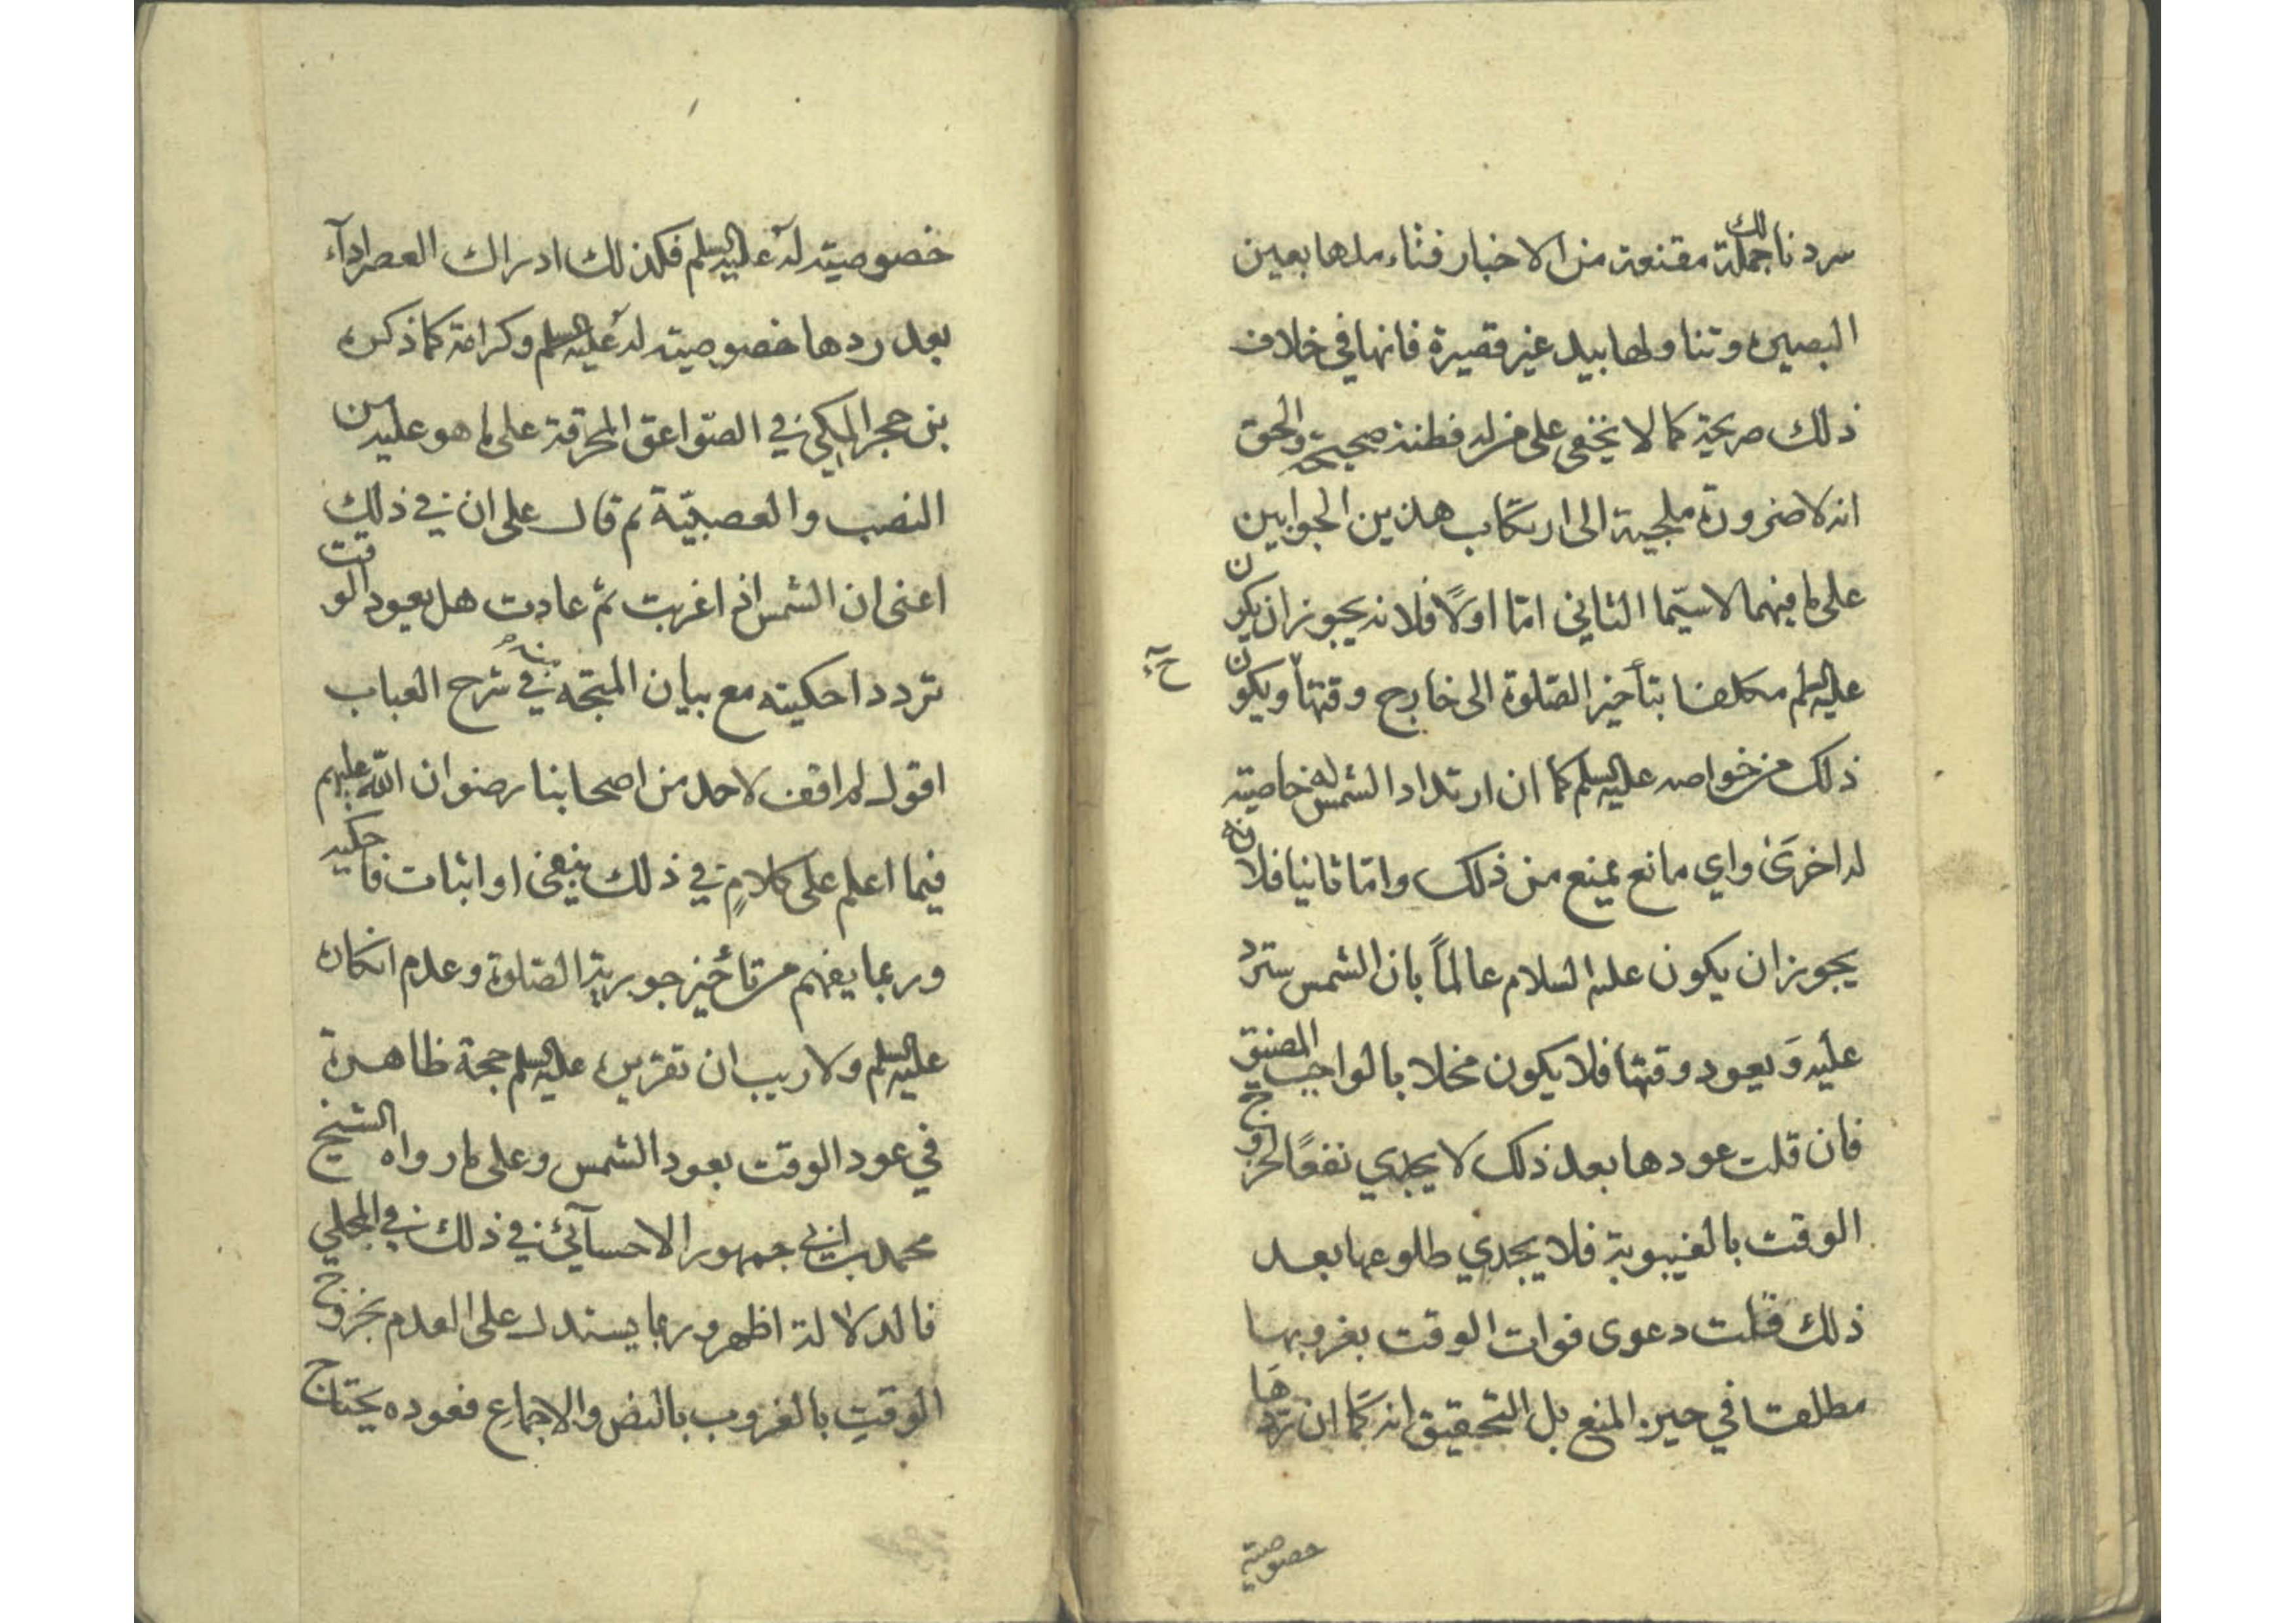 سردنا لك جملة مقنعة من الاخبار فتاملها بعين
البصيره وتناولها بيد غير قصيرة فانها في خلاف
ذلك صريحة كما لا يخفى على من له فطنة صحيحة والحق
انه لا ضرورة ملجية الى ارتكاب هذين الجوابين
على ما فيهما لا سيّما الثاني امّا اولاً فلانه يجوز ان يكون
عليه السلم مكلفا بتأخير الصّلوة الى خارج وقتها ويكون
ذلك من خواصه عليه السلم كما ان ارتداد الشمس له خاصية
له اخرى واي مانع يمنع من ذلك وامّا ثانيا فلانه
يجوز ان يكون عليه السلام عالماً بان الشمس سترد
عليه وَيعود وقتها فلا يكون مخلا بالواجب المضيق
فان قلت عودها بعد ذلك لا يجدي نفعًا لخروج
الوقت بالغيبوبة فلا يجدي طلوعها بعد
ذلك قلت دعوى فوات الوقت بغروبها
مطلقا في حيز المنع بل التحقيق انه كما ان ردها
خصوصية
خصوصيّة له عليه السلم فكذلك ادراك العصر اداء
بعد ردها خصوصية له عليه السلم وكرامة كما ذكره
بن حجر المكي في الصّواعق المحرقة على ما هو عليه من
النصب والعصبيّة ثم قال على ان في ذلك
اعنى ان الشمس اذا غربت ثم عادت هل يعود الوقت
تردد احكيته مع بيان المتجّه منه في شرح العباب
اقول لم اقف لاحد من اصحابنا رضوان الله عليهم
فيما اعلم على كلامٍ في ذلك بنفى او اثبات فاحكيه
وربما يفهم من تأخير جويرية الصّلوة وعدم انكاره
عليه السلم ولا ريب ان تقريره عليه السلم حجة ظاهرة
في عود الوقت بعود الشمس وعلى ما رواه الشيخ
محمد بن ابي جمهور الاحسآئي في ذلك في المجلي
فالدلالة اظهر وربما يستدل على العدم بخروج
الوقت بالغروب بالنص والاجماع فعوده يحتاج